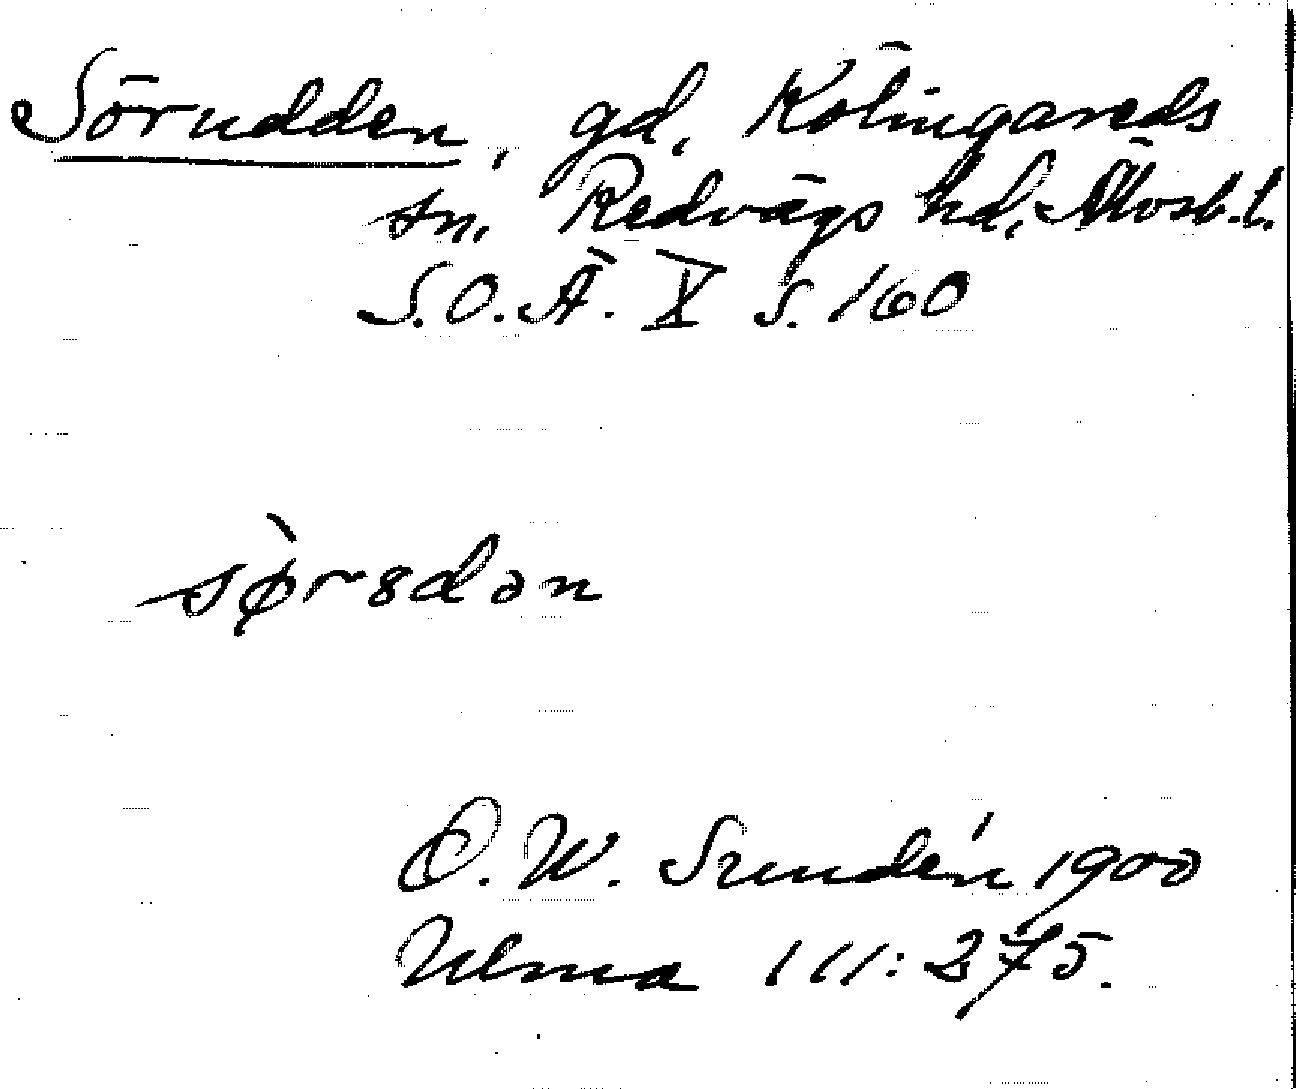 Sörudden, gd, Kölingareds
sn. Redvägs hd, Älvsb. l.
S.O.Ä. X s. 160
sø̀rȣdən
D. W. Sundén 1900
Ulma 111:275.